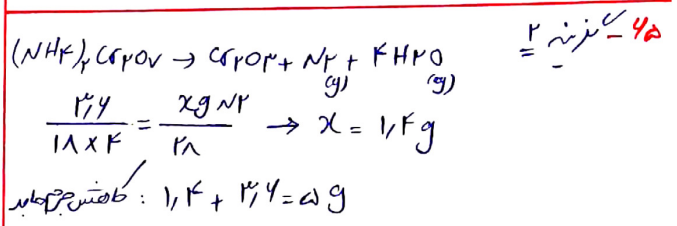 ۶۵- گزینه ۲
(NH۴)۲Cr۲O۷ → Cr۲O۳ + N۲(g) + ۴H۲O(g)
۳,۶ / ۱۸×۴ = xg N۲ / ۲۸ → x = ۱,۴g
کاهش جرم جامد : ۱,۴ + ۳,۶ = ۵g